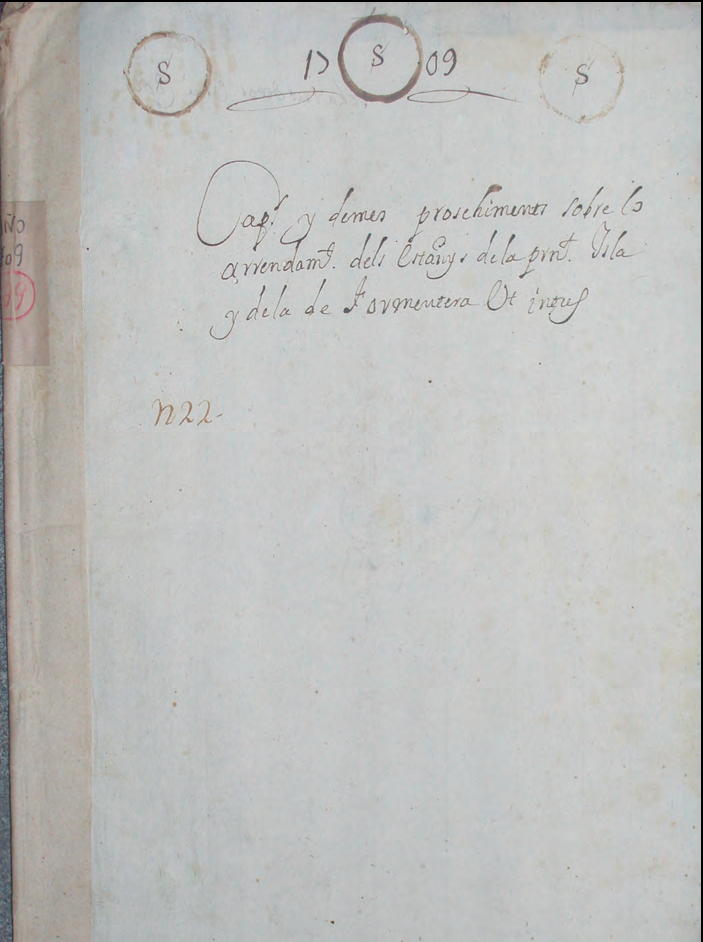 S 17 S 09 S
Capˢ. y demes prosehiments sobre lo
arrendamᵗ. dels Estanys de la pmᵗ. Isla
y de la de Formentera Ut intus
n22-
ÑO
09